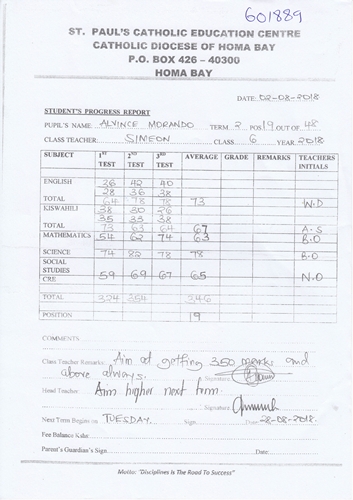 601889
ST. PAUL'S CATHOLIC EDUCATION CENTRE
CATHOLIC DIOCESE OF HOMA BAY
P.O. BOX 426 – 40300
HOMA BAY
DATE: 02-08-2018
STUDENT'S PROGRESS REPORT
PUPIL'S NAME: ALVINCE MORANDO TERM 2 POS 19 OUT OF 48
CLASS TEACHER SIMEON CLASS 6 YEAR 2018
SUBJECT 1ST TEST 2ND TEST 3RD TEST AVERAGE GRADE REMARKS TEACHERS INITIALS
ENGLISH 36 42 40
28 36 38
TOTAL 64 78 78 73 W.D
KISWAHILI 38 30 26
35 33 38
TOTAL 73 63 64 67 A.S
MATHEMATICS 54 62 74 63 B.O
SCIENCE 74 82 78 78 B.O
SOCIAL
STUDIES 59 69 67 65 N.O
CRE
TOTAL 324 354 346
POSITION 19
COMMENTS
Class Teacher Remarks: Aim at getting 350 marks and
above always. Signature
Head Teacher: Aim higher next term.
Signature
Next Term Begins on TUESDAY Sign Date 28-08-2018.
Fee Balance Kshs:
Parent's Guardian's Sign Date:
Motto: "Disciplines Is The Road To Success"